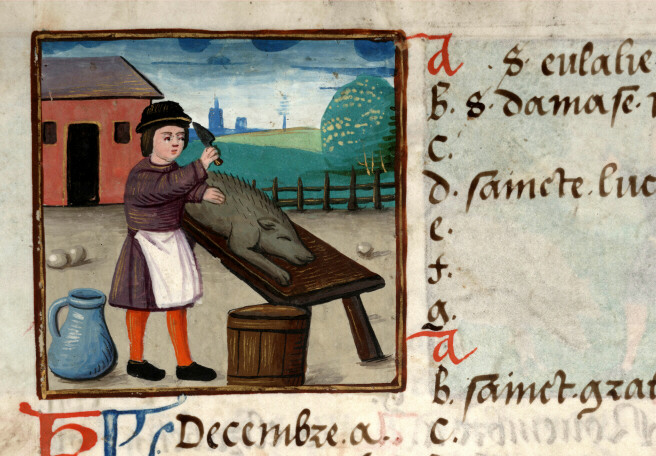 A · S· eulalie
b. S. damase.
c.
d. saincte. luc
e.
f.
g.
A
b. sainct. grat
c.
Decembre. a.